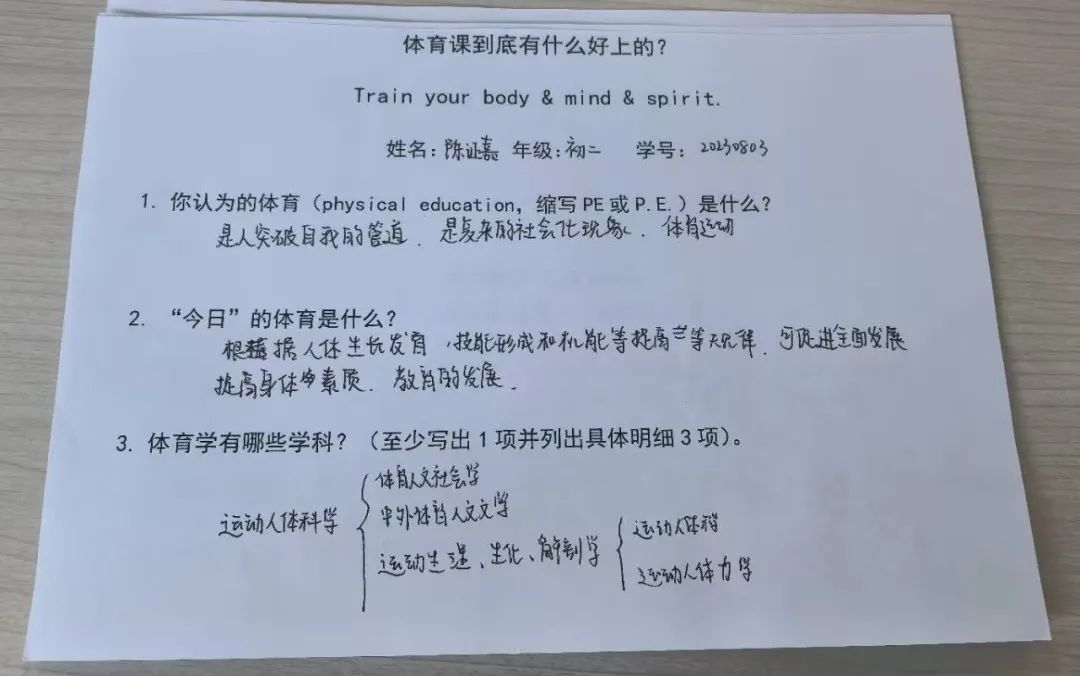 体育课到底有什么好上的？
Train your body & mind & spirit.
姓名：陈证嘉 年级：初二 学号：20230803
1. 你认为的体育（physical education，缩写 PE 或 P.E.）是什么？
是人突破自我的管道．是复杂的社会化现象．体育运动
2. “今日”的体育是什么？
根据人体生长发育，技能形成和机能等提高等规律．可促进全面发展
提高身体素质．教育的发展．
3. 体育学有哪些学科？（至少写出 1 项并列出具体明细 3 项）。
体育人文社会学
运动人体科学
中外体育人文文学
运动生理、生化、解剖学
运动人体科学
运动人体力学